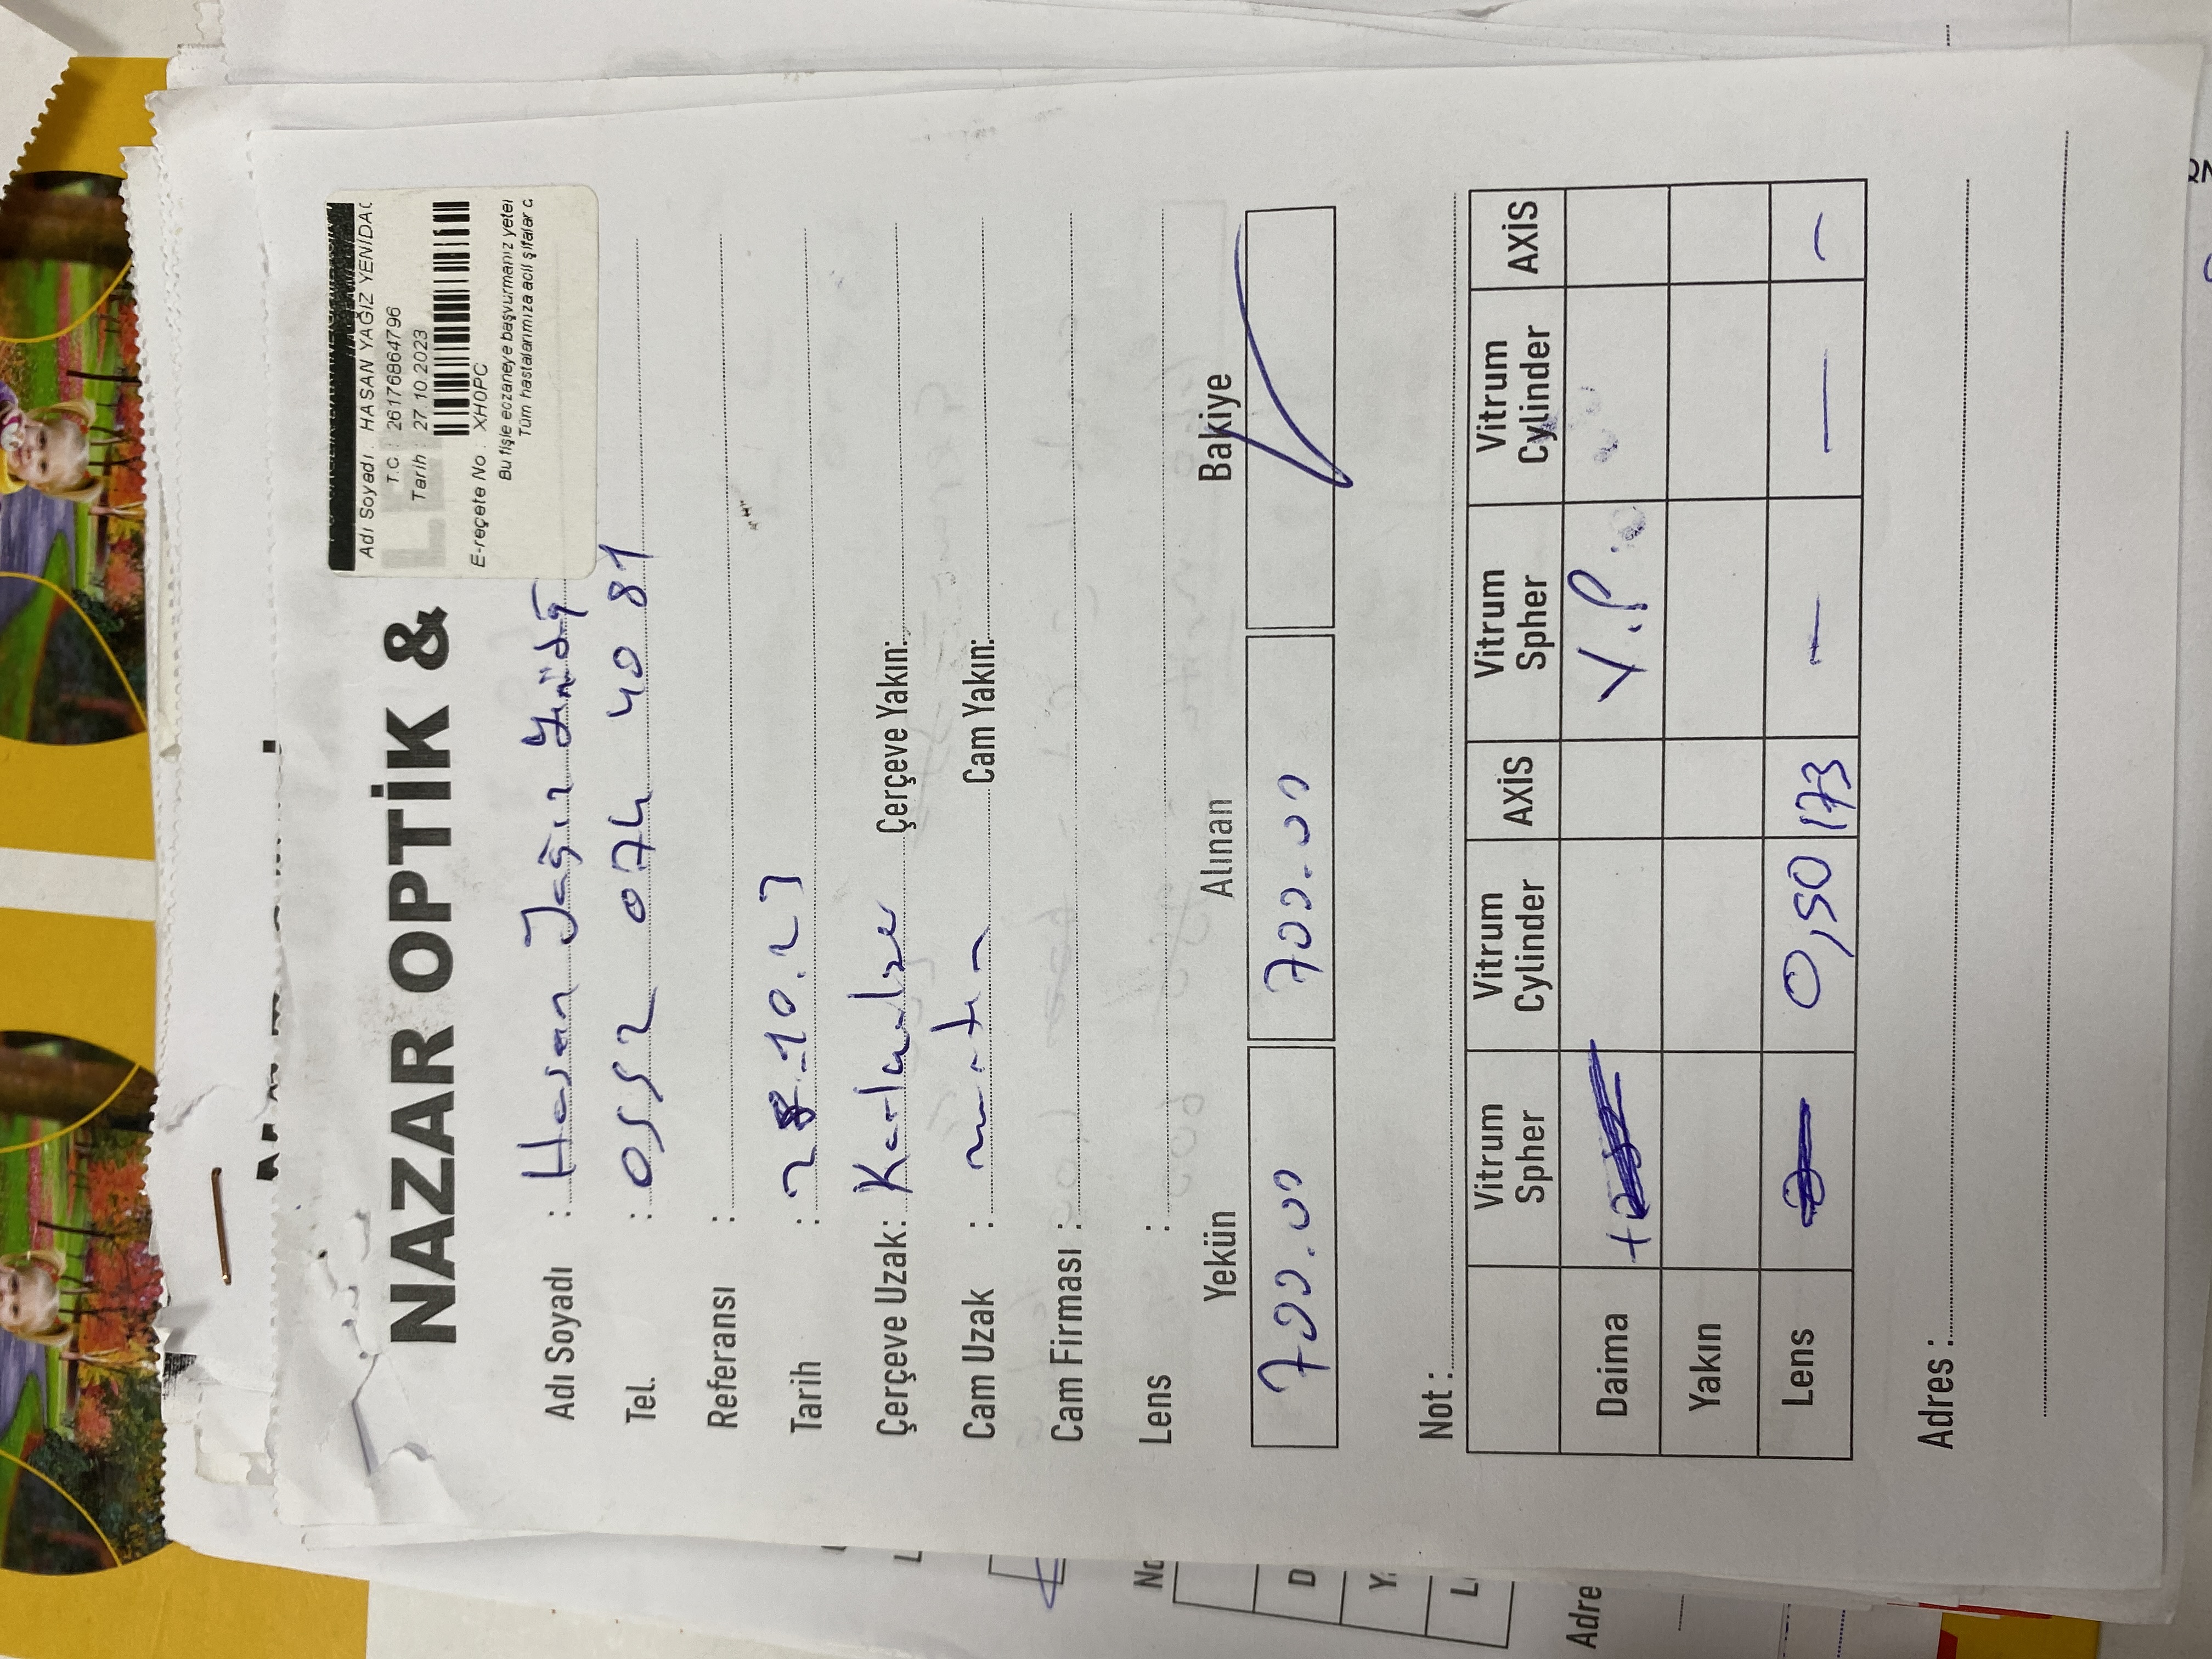 NAZAR OPTİK &
Adı Soyadı : HASAN YAĞIZ YENİDA
T.C. : 26176864796
Tarih : 27.10.2023
E-reçete No : XH0PC
Bu fişle eczaneye başvurmanız yeter
Tüm hastalarımıza acil şifalar d
Adı Soyadı : Hasan Yağız
Tel. : 0552 074 40 81
Referansı :
Tarih : 28.10.23
Çerçeve Uzak: Çerçeve Yakın:
Cam Uzak : Cam Yakın:
Cam Firması :
Lens :
Yekün Alınan Bakiye
700.00 700.00
Not :
Vitrum Spher Vitrum Cylinder AXİS Vitrum Spher Vitrum Cylinder AXİS
Daima V.P.
Yakın
Lens 0,50 173 — — —
Adres :